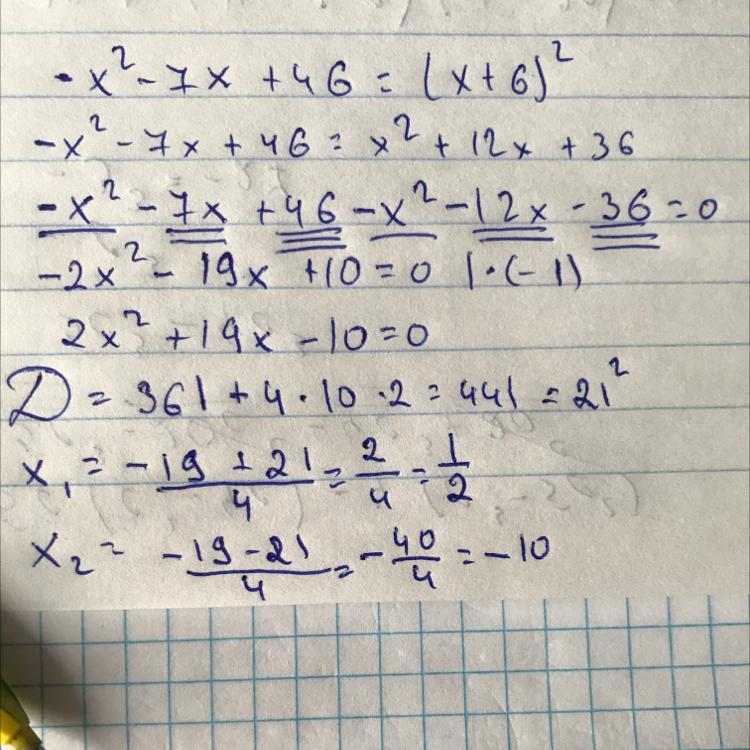 -x² - 7x + 46 = (x + 6)²
-x² - 7x + 46 = x² + 12x + 36
-x² - 7x + 46 - x² - 12x - 36 = 0
-2x² - 19x + 10 = 0 | · (-1)
2x² + 19x - 10 = 0
D = 361 + 4 · 10 · 2 = 441 = 21²
x₁ = (-19 + 21)/4 = 2/4 = 1/2
x₂ = (-19 - 21)/4 = -40/4 = -10